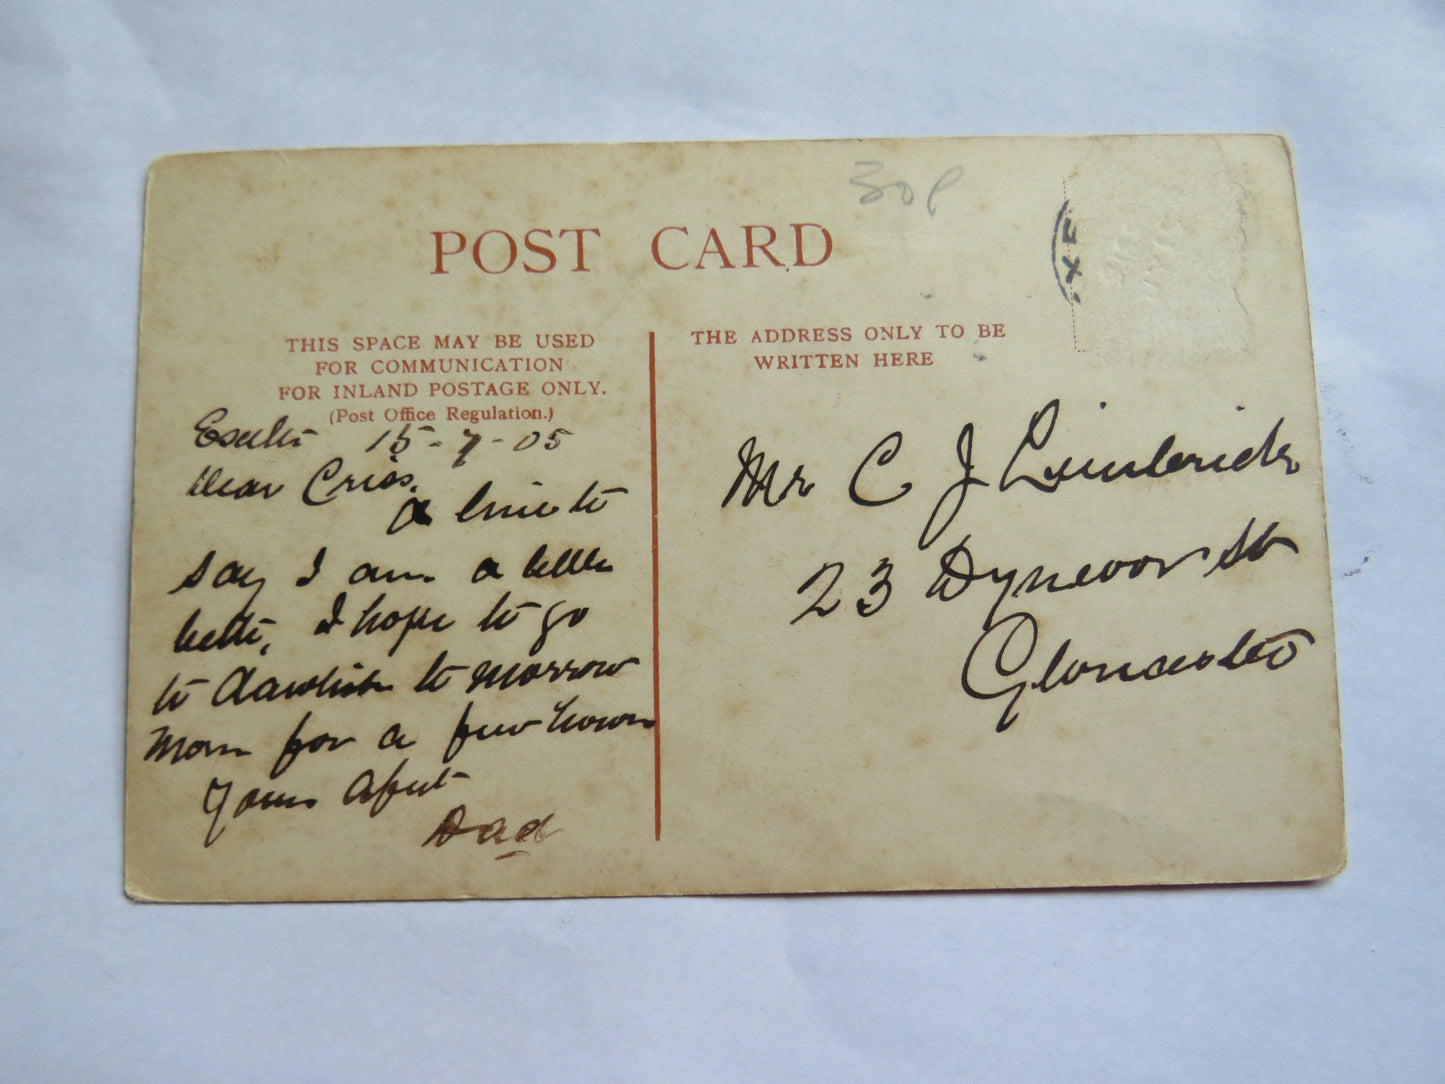 30p
POST CARD
EXE
THIS SPACE MAY BE USED
FOR COMMUNICATION
FOR INLAND POSTAGE ONLY.
(Post Office Regulation.)
Exeter 15-7-05
Dear Criss.
a line to
say I am a little
better, I hope to go
to dawlish to morrow
Morn for a few hours
Yours Afect
Dad
THE ADDRESS ONLY TO BE
WRITTEN HERE
Mr C J Limbrick
23 Dynevor St
Gloucester